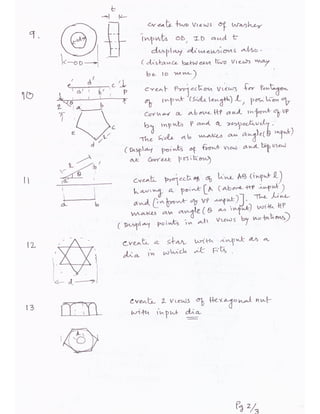 9.
t
create two views of washer
inputs OD, ID and t
display dimensions also.
(distance between two views may
be 10 mm)
OD
10
Creat Projection views for Pentagon
of input (Side length) l, position of
Corner a above HP and infront of VP
by inputs P and q respectively.
The Side ab makes an angle (θ input)
(Display points of front view and top view
at Correct position)
e' d' c'
a' b'
P
a
b
c
d
e
11
Create projection of line AB (input l)
having a point [A (above HP input)
and (infront of VP input)]. The line
makes an angle (θ as input) with HP
(Display points in all views by notations)
l
a' b'
θ
a b
12
Create a star with input as a
dia in which it fits.
d
13
Create 2 views of Hexagonal nut
with input dia
d
Pg 2/3